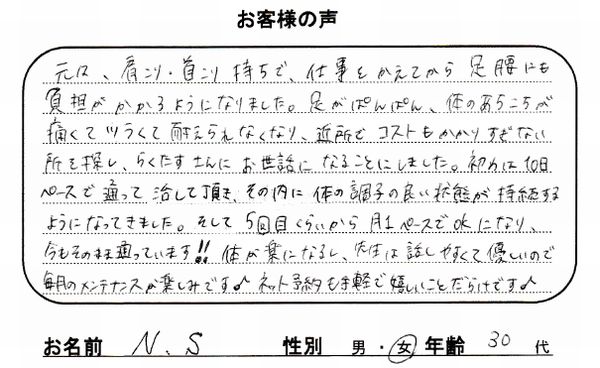 お客様の声
元々、肩こり・首こり持ちで、仕事をかえてから足腰にも
負担がかかるようになりました。足がぱんぱん、体のあちこちが
痛くてツラくて耐えられなくなり、近所でコストもかかりすぎない
所を探し、らくたすさんにお世話になることにしました。初めは10日
ペースで通って治して頂き、その内に体の調子の良い状態が持続する
ようになってきました。そして5回目くらいから月1ペースでOKになり、
今もそのまま通っています!! 体が楽になるし、先生は話しやすくて優しいので
毎月のメンテナンスが楽しみです♪ ネット予約も手軽で嬉しいことだらけです♪
お名前 N.S 性別 男・女 年齢 30代